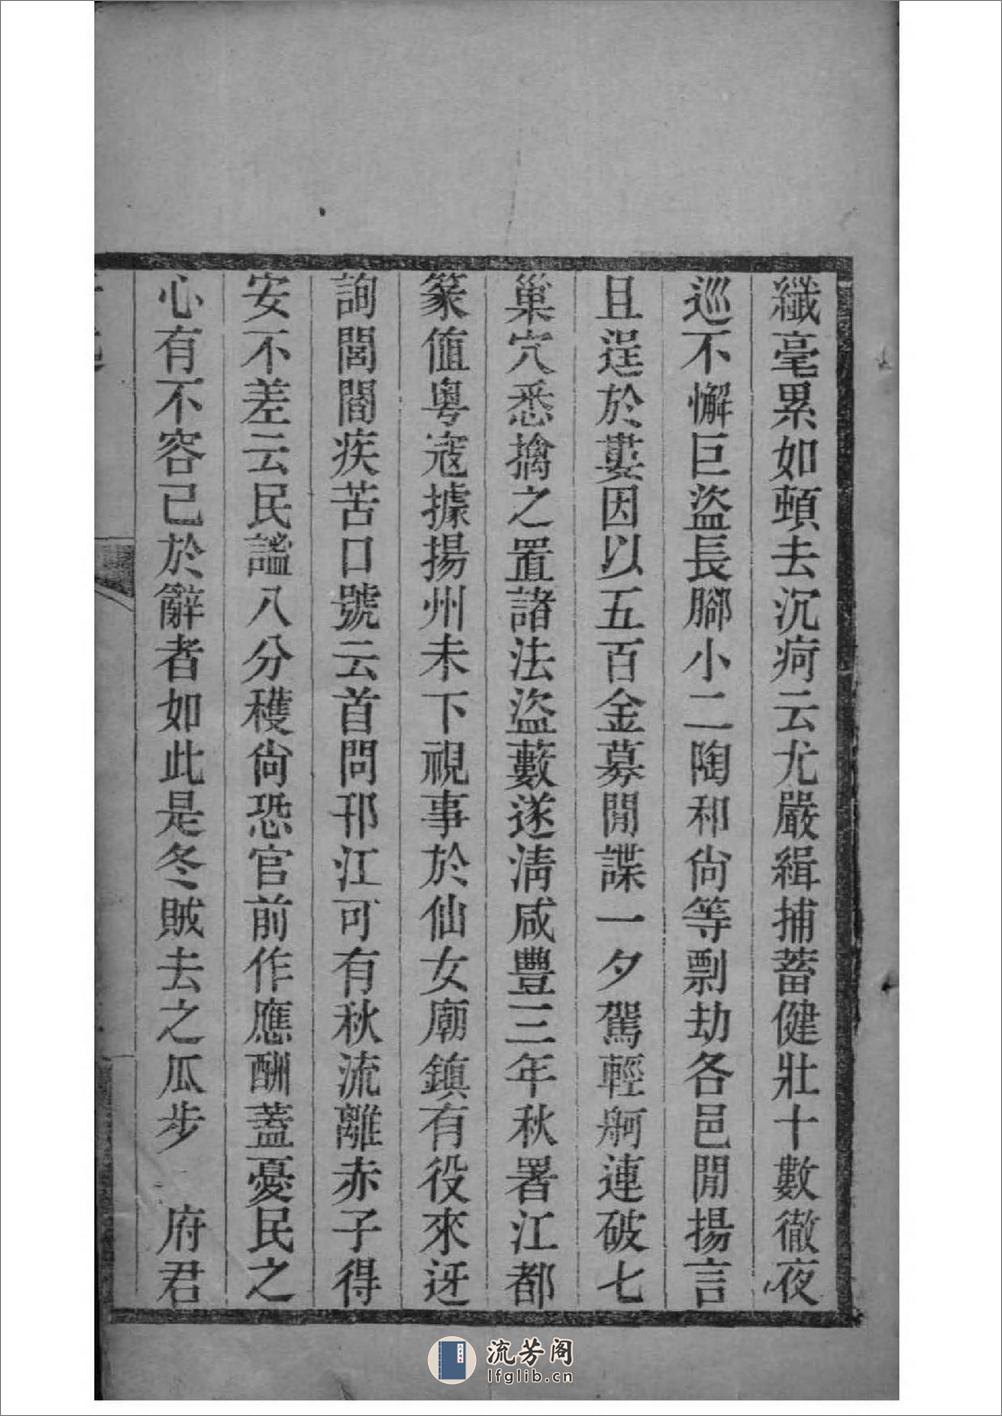 纖毫累如頓去沉疴云尤嚴緝捕蓄健壯十數徹夜
巡不懈巨盜長腳小二陶和尙等剽劫各邑閒揚言
且逞於婁因以五百金募閒諜一夕駕輕舸連破七
巢穴悉擒之置諸法盜藪遂淸咸豐三年秋署江都
篆値粵寇據揚州未下視事於仙女廟鎮有役來迓
詢閭閻疾苦口號云首問邗江可有秋流離赤子得
安不差云民謐八分穫尙恐官前作應酬蓋憂民之
心有不容已於辭者如此是冬賊去之瓜步 府君
流芳阁
lfglib.cn